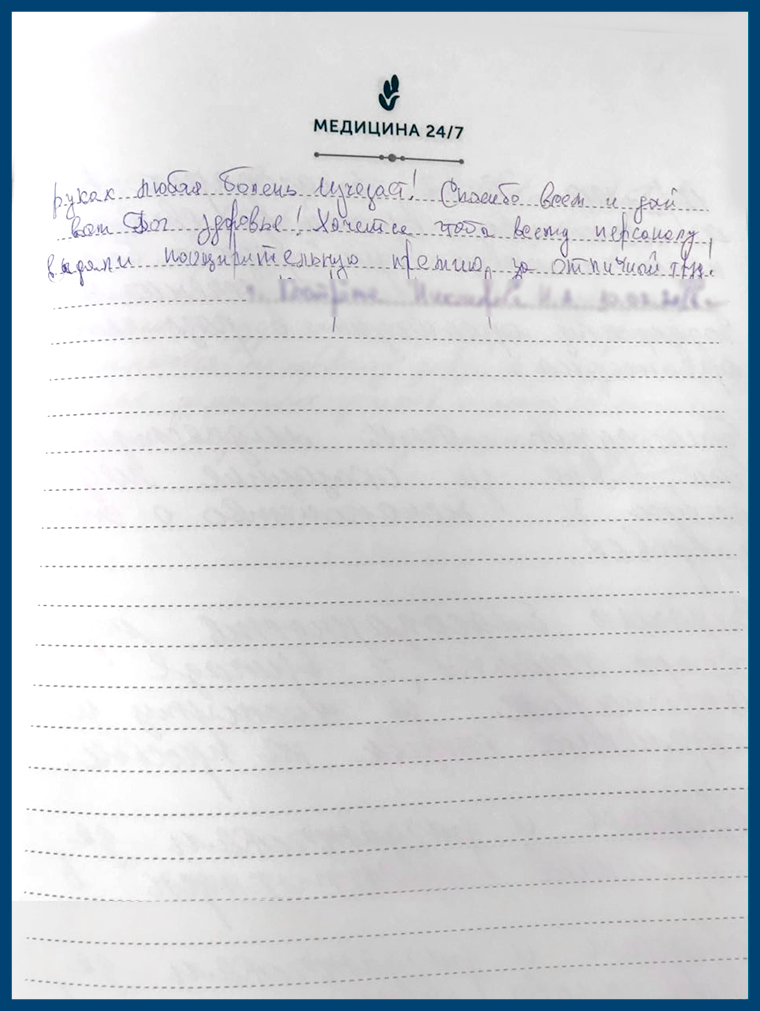 МЕДИЦИНА 24/7
рукак любая болень изчезает! Спасибо всем и дай
вам Бог здоровье! Хочется чтоба всему персоналу,
выдали поощирительную премию, за отличной труд!